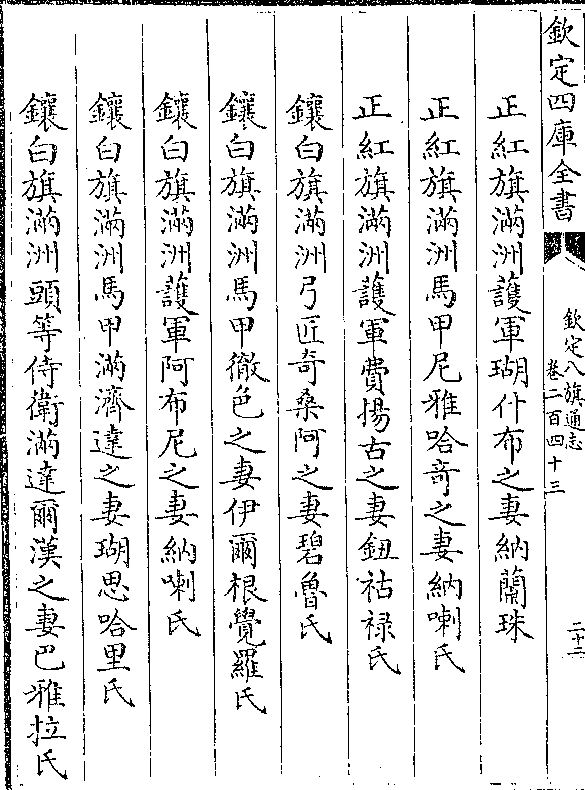 欽定四庫全書
欽定八旗通志
卷二百四十三
二十二
正紅旗滿洲護軍瑚什布之妻納蘭珠
正紅旗滿洲馬甲尼雅哈竒之妻納喇氏
正紅旗滿洲護軍費揚古之妻鈕祜禄氏
鑲白旗滿洲弓匠奇桑阿之妻碧魯氏
鑲白旗滿洲馬甲徹色之妻伊爾根覺羅氏
鑲白旗滿洲護軍阿布尼之妻納喇氏
鑲白旗滿洲馬甲滿濟達之妻瑚思哈里氏
鑲白旗滿洲頭等侍衛滿達爾漢之妻巴雅拉氏